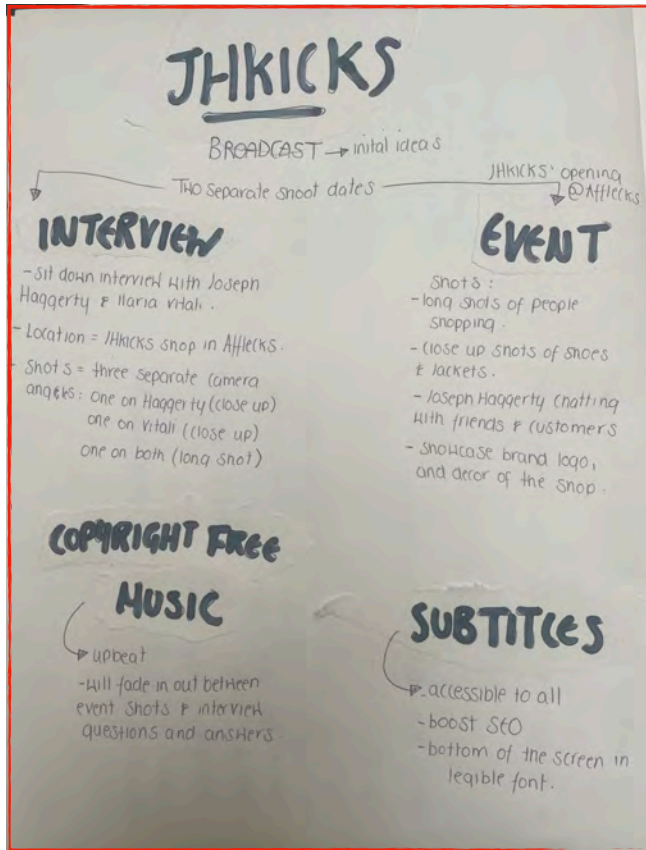 JHKICKS
BROADCAST → inital ideas
Two separate shoot dates
JHKICKS' opening
@Afflecks
INTERVIEW
- Sit down interview with Joseph
Haggerty & Ilaria Vitali.
- Location = JHKICKS shop in Afflecks.
- Shots = three separate camera
angels: one on Haggerty (close up)
one on Vitali (close up)
one on both (long shot)
EVENT
Shots:
- long shots of people
shopping.
- Close up shots of shoes
& Jackets.
- Joseph Haggerty chatting
with friends & customers
- Showcase brand logo,
and decor of the shop.
COPYRIGHT FREE
MUSIC
upbeat
- Will fade in out between
event shots & interview
questions and answers.
SUBTITLES
- accessible to all
- boost SEO
- bottom of the screen in
legible font.